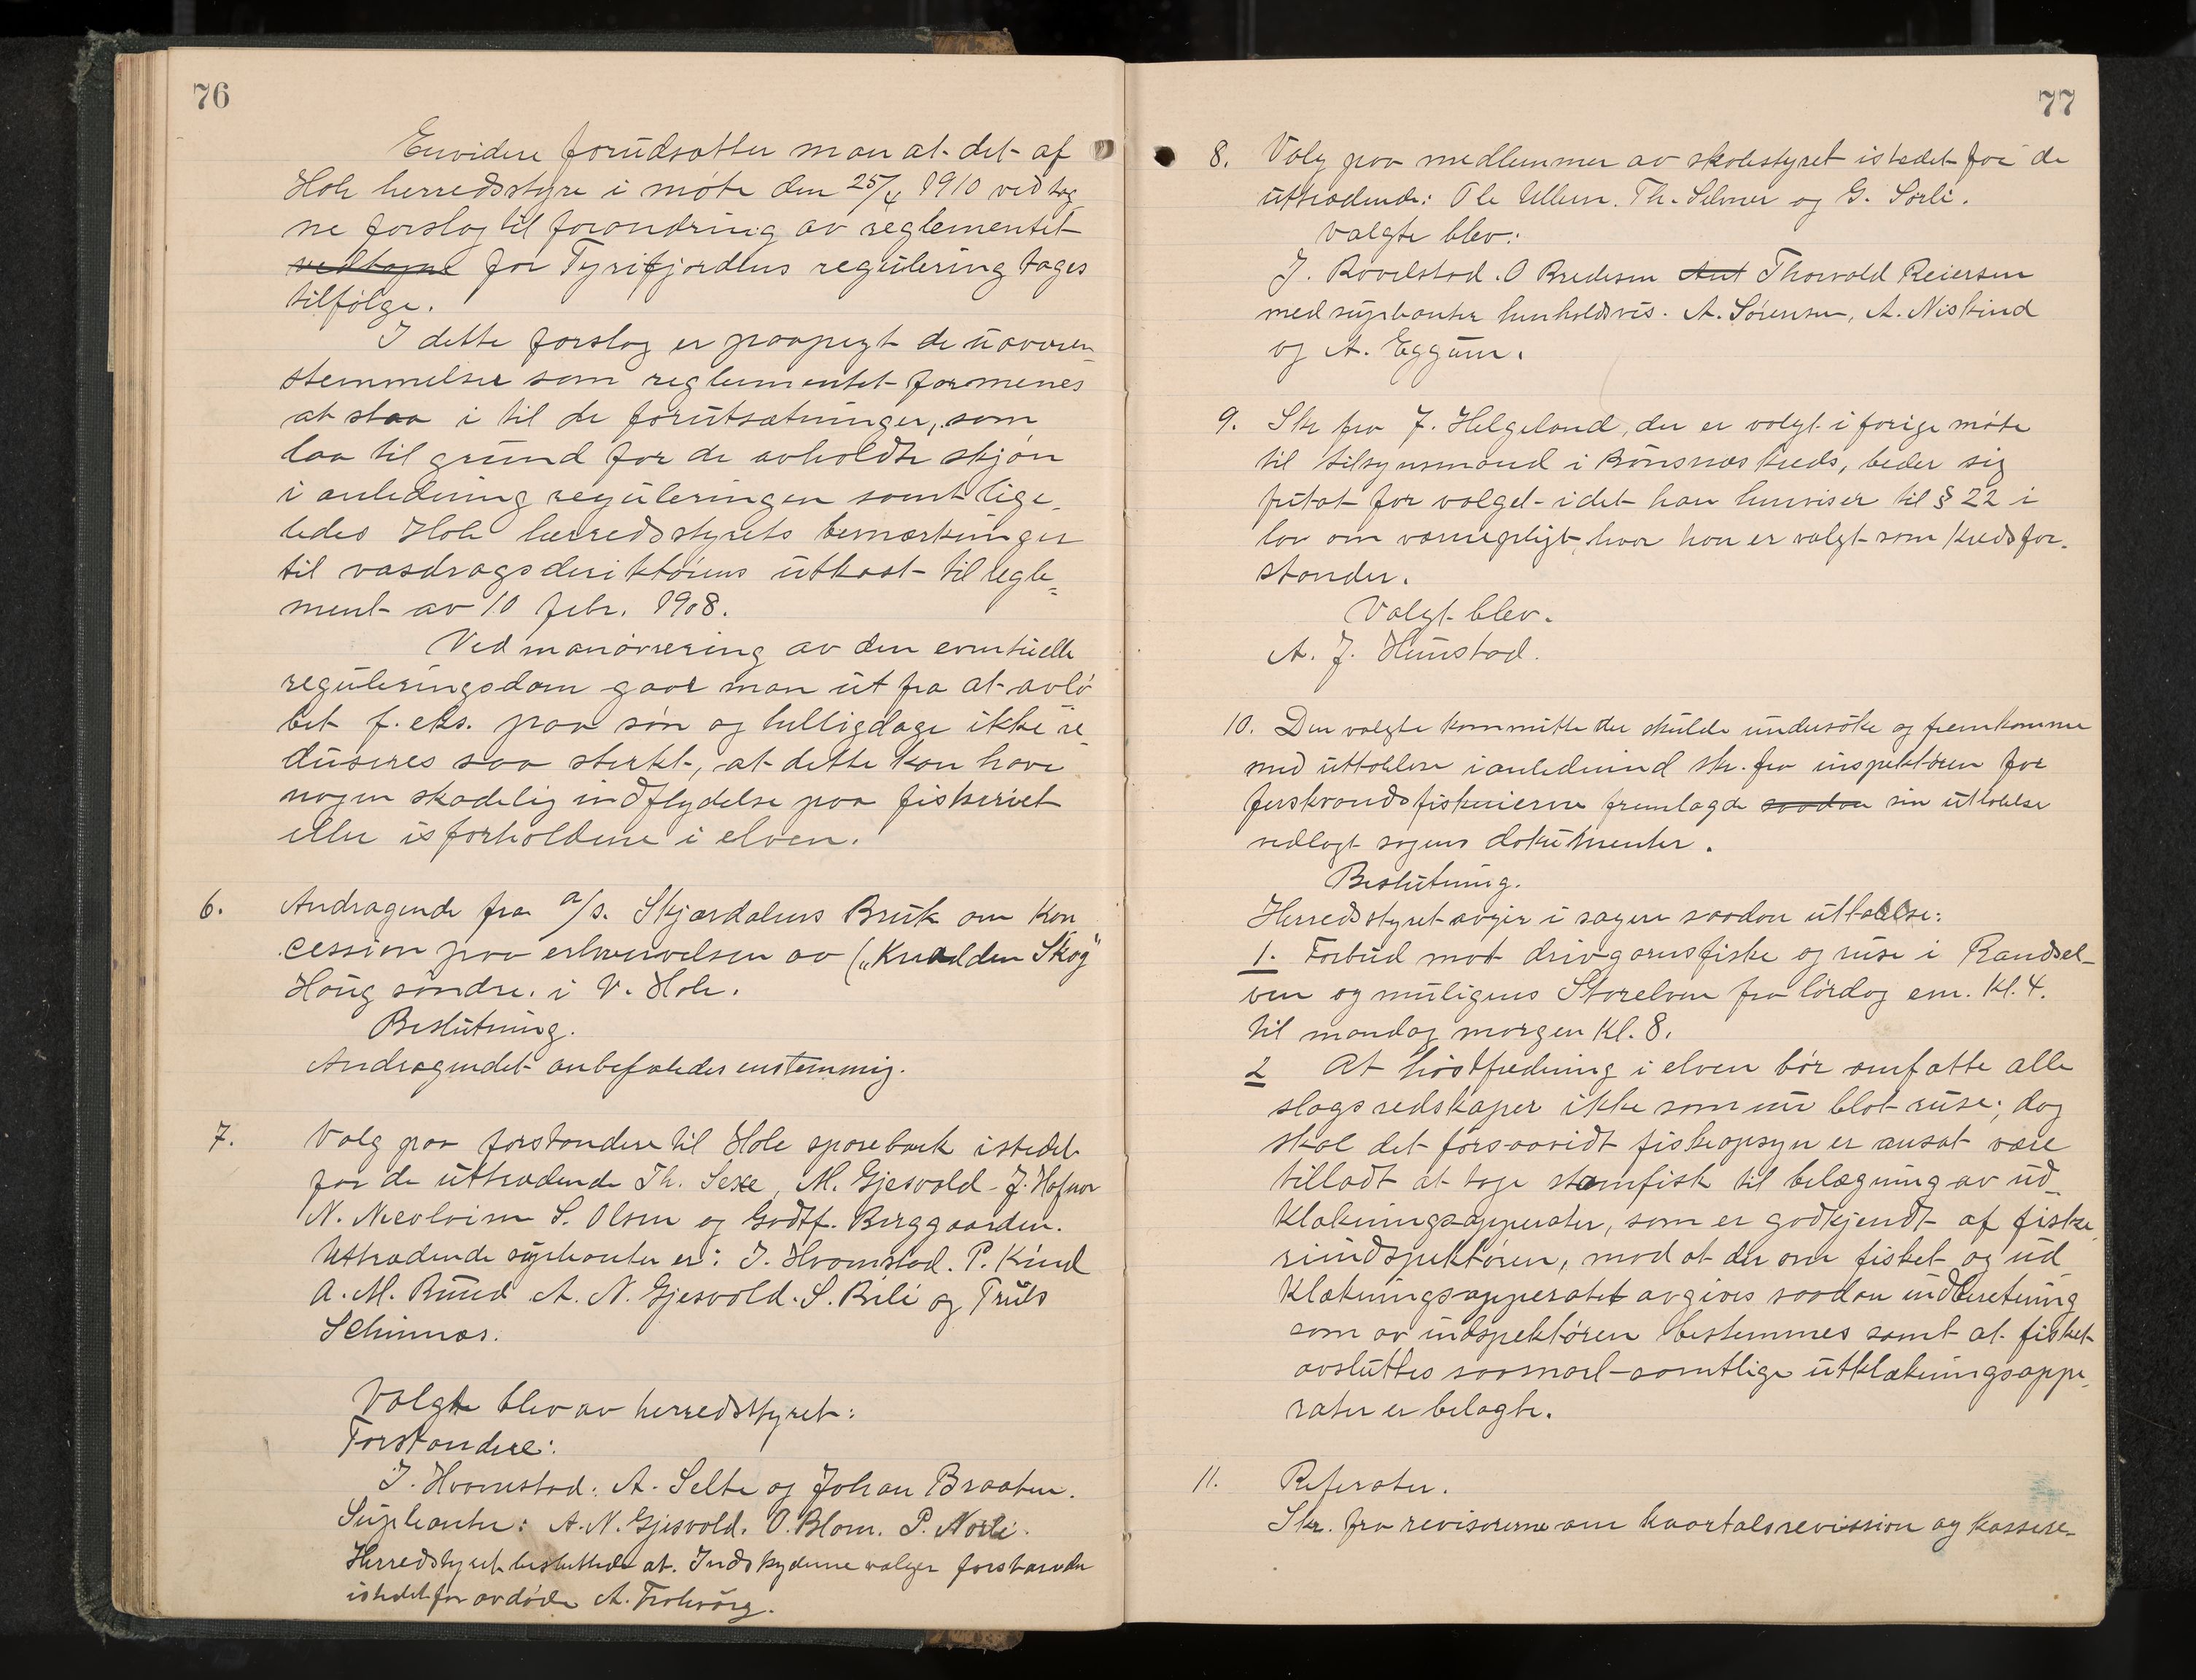 76
Envidere forudsætter man at det af
Hole herredsstyre i møte den 25/4 1910 vedtag
ne forslag til forandring av reglementet
vedtagne for Tyrifjordens regulering tages
tilfølge.
I dette forslag er paapegt de uoveren
stemmelser som reglementet formenes
at staa i til de forutsætninger, som
laa til grund for de avholdte skjøn
i anledning reguleringen samt lige-
ledes Hole herredsstyrets bemærkninger
til vasdragsderiktørens utkast til regle=
ment av 10 febr. 1908.
Ved manøvrering av den eventuelle
reguleringsdam gaar man ut fra at avlø
bet f. eks. paa søn og helligdage ikke re
duseres saa sterkt, at dette kan have
nogen skadelig indflydelse paa fiskeriet
eller isforholdene i elven.
6. Andragende fra a/s. Skjærdalens Bruk om Kon
cession paa erhvervelsen av („Knalden Skog"
Houg søndre. i V. Hole.
Beslutning.
Andragendet anbefaledes enstemmig.
7. Valg paa forstandere til Hole sparebank istedet
for de uttrædende Th. Sexe, M. Gjesvold - J. Hofnor
N. Nicolaisen S. Olsen og Godtf. Berggaarden.
Uttrædende suplianter er: I. Hvamstad. P. Krud
A. M. Ruud A. N. Gjesvold. S. Rili og Truls
Selmnæs.
Valgte blev av herredsstyret:
Forstandere:
I. Hvamstad. A. Selte og Johan Braaten.
Supleanter: A. N. Gjesvold. O. Blom. P. Norli.
Herredstyret besluttede at. Indskyderne vælger forstander
istedet for avdøde A. Frøhaug.
77
8. Valg paa medlemmer av skolestyret istedet for de
uttrædende: Ole Ullern. Th. Selmer og G. Sørli.
Valgte blev:
J. Rovelstad. O Bredesen Ant Thorvald Reiersen
med supleanter henholdsvis. A. Sørensen, A. Niskind
og A. Eggum.
9. Skr fra J. Helgeland, der er valgt i forige møte
til tilsynsmand i Bønsnæs kreds, beder sig
fritat for valget idet han henviser til § 22 i
lov om værnepligt, hvor han er valgt som Kredsfor-
stander.
Valgt blev.
A. J. Hunstad.
10. Den valgte kommitte der skulde undersøke og fremkomme
med uttalelse ianlednind skr. fra inspektøren for
ferskvandsfiskerierne fremlagde saadan sin uttalelse
vedlagt sagens dokumenter.
Beslutning.
Herredsstyret avgir i sagen saadan uttalelse:
1. Forbud mot drivgarnsfiske og ruse i Randsel-
ven og muligens Storelven fra lørdag em. Kl. 4.
til mandag morgen Kl. 8.
2 At høstfredning i elven bør omfatte alle
slags redskaper ikke som nu blot ruse; dog
skal det forsaavidt fiskeopsyn er ansat være
tilladt at tage stamfisk til belægning av ud
klækningsapperater, som er godkjendt af fiske
riindspektøren, mod at der om fisket og ud
klækningsapperatet avgives saadan indberetning
som av indspektøren bestemmes samt at fisket
avsluttes saasnart samtlige utklækningsappe
rater er belagte.
11. Referater.
Skr. fra revisorerne om kvartalsrevission og kassere-